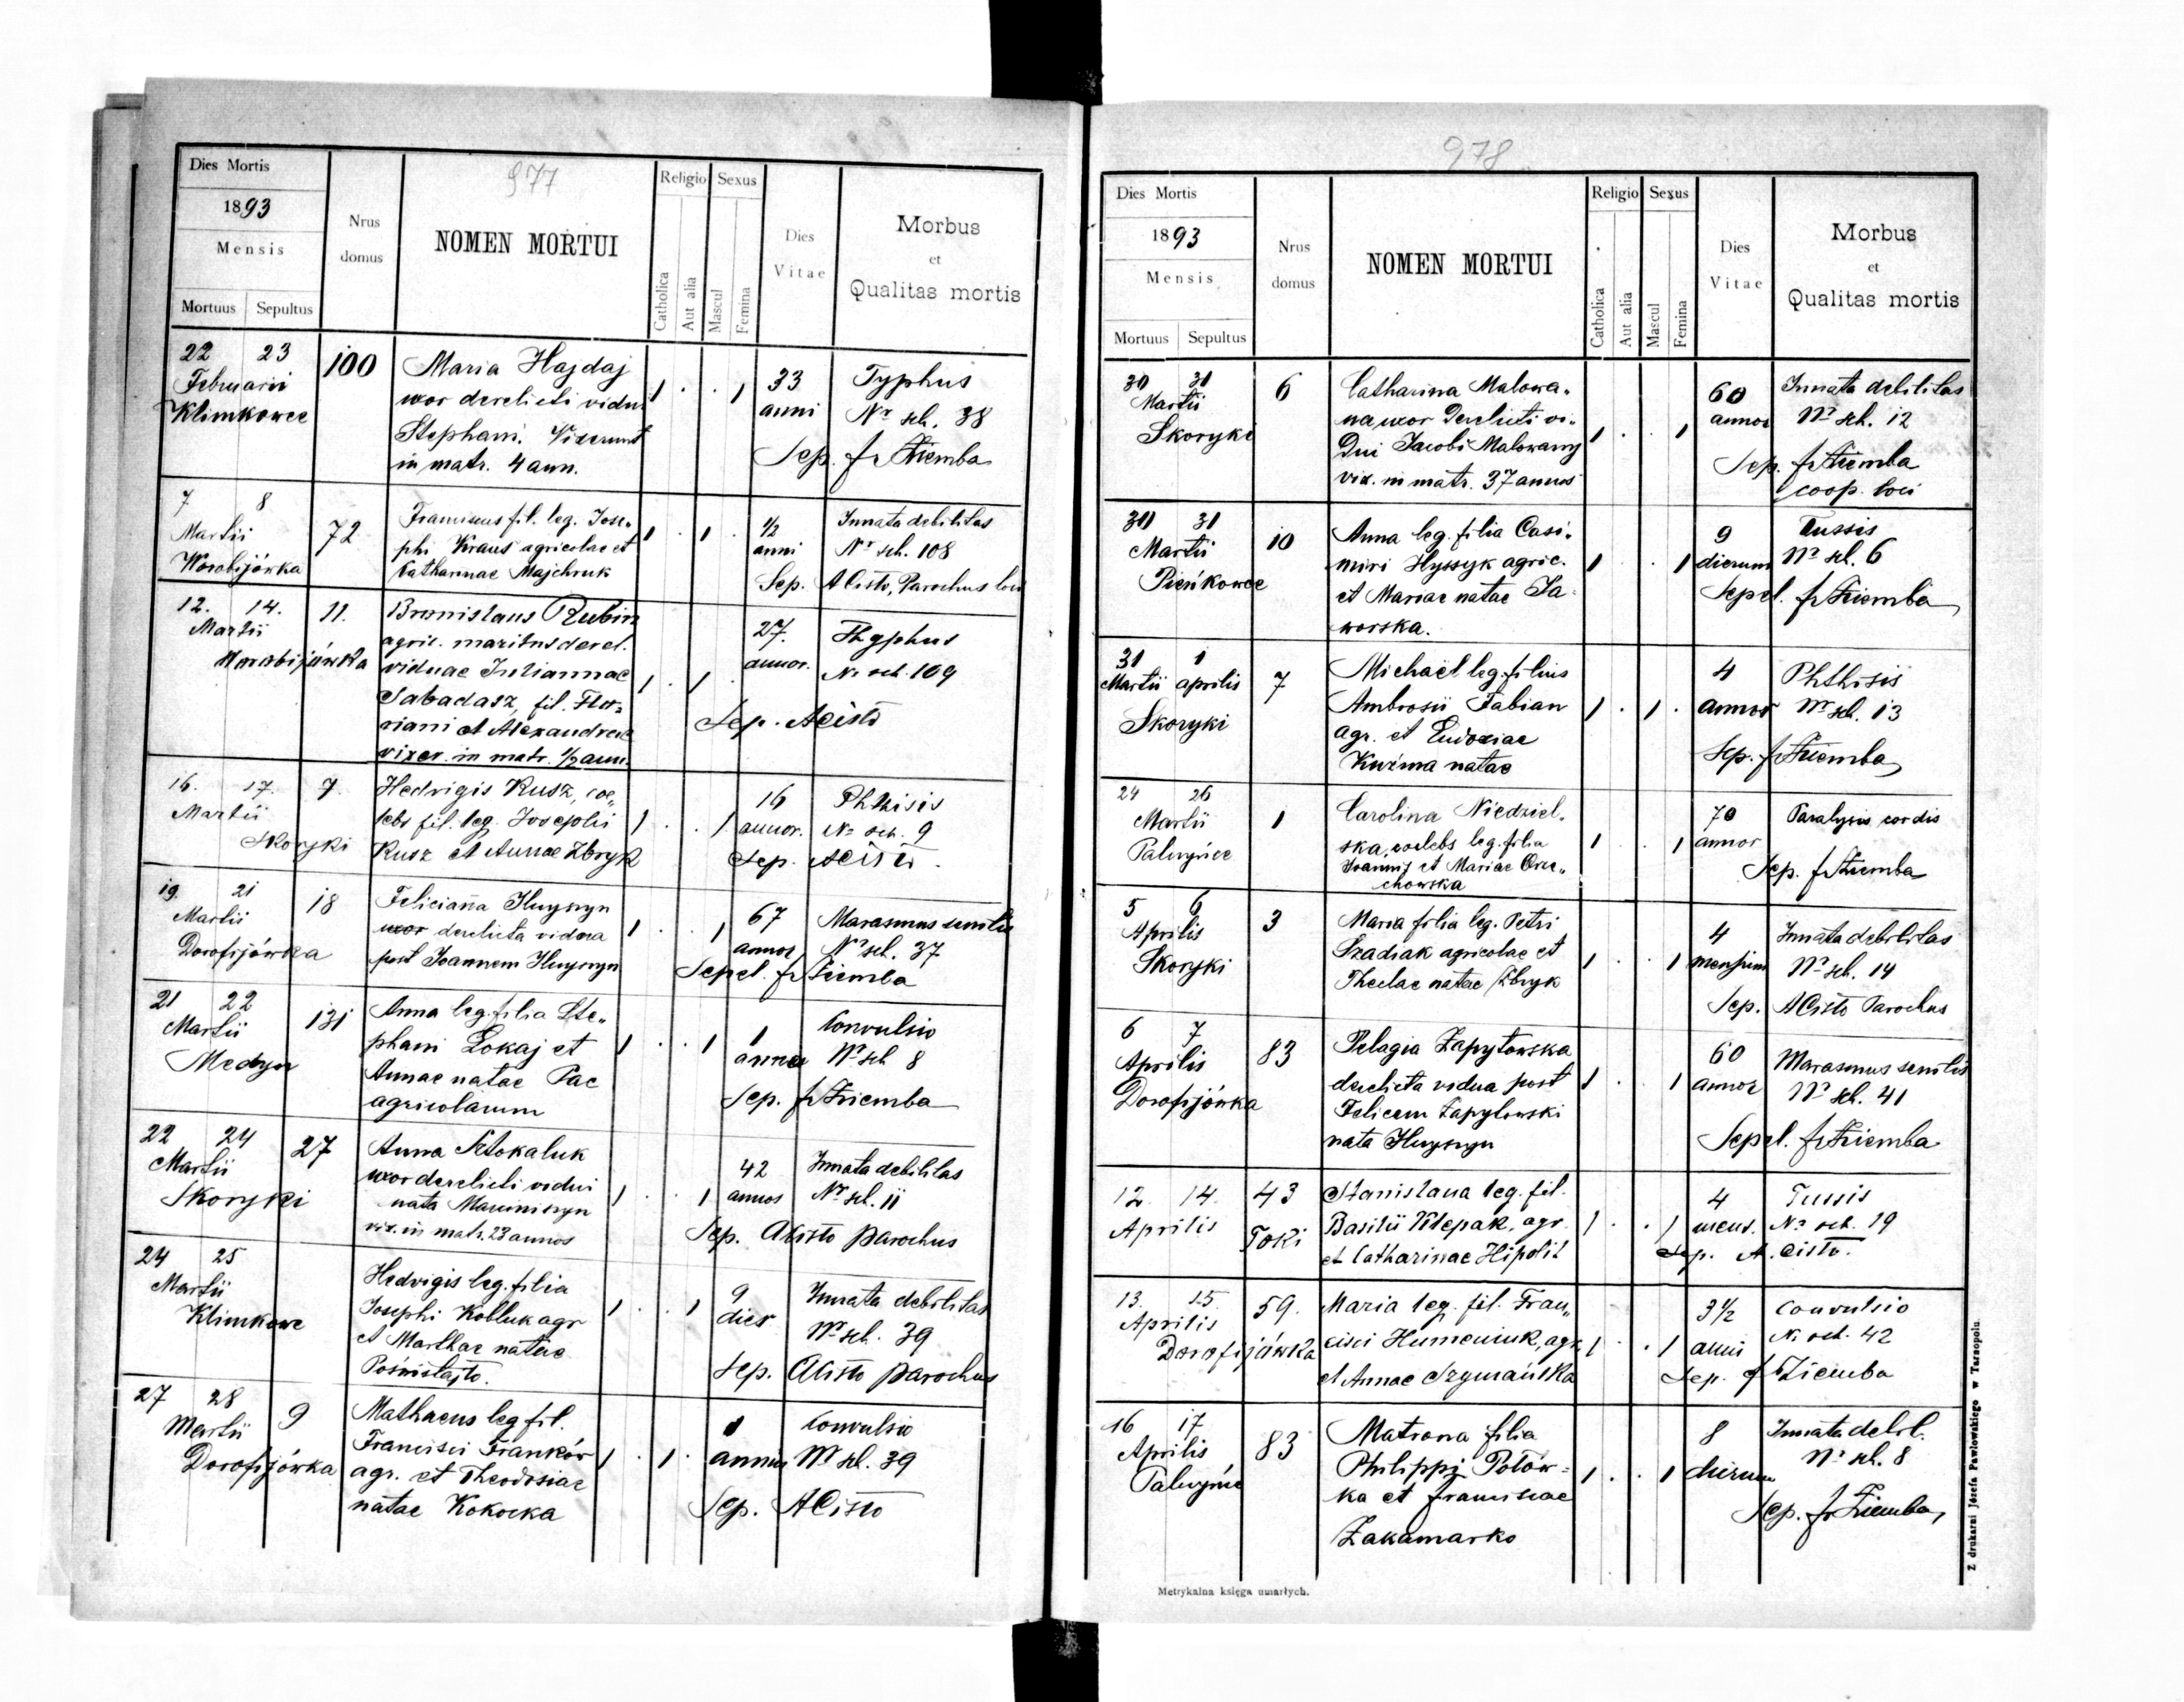 977
Dies Mortis
1893
Mensis
Mortuus Sepultus
Nrus domus
NOMEN MORTUI
Religio
Catholica
Aut alia
Sexus
Mascul
Femina
Dies Vitae
Morbus
et
Qualitas mortis
22 23 100 Maria Hajdaj 1 . . 1 33 Typhus
Februarii uxor derelicti vidui anni Nr sch. 38
Klimkowce Stephani. Vixerunt Sep. fr Ziemba
in matr. 4 ann.
7 8 72 Franciscus fil. leg. Jose„ 1 . 1 . 1/2 Innata debilitas
Martii phi Kraus agricolae et anni Nr sch. 108
Worobijówka Catharinae Majchruk Sep. A Cisto, Parochus loci
12. 14. 11. Bronislaus Rubin 27. Thyphus
Martii agric. maritus derel. annor. Nr sch. 109
Worobijówka viduae Juliannae 1 . 1 .
Sabadasz, fil. Flo„ Sep. A Cisto
riani et Alexandrae
vixer. in matr. 1/2 ann.
16. 17. 7. Hedvigis Kusz, coe„ 16 Phthisis
Martii lebs fil. leg. Josephi 1 . . 1 annor. Nr sch. 9
Skoryki Kusz et Annae Zbryk Sep. A Cisto.
19. 21 18 Feliciana Huysyn 67 Marasmus senilis
Martii uxor derelicta vidua 1 . . 1 annor Nr sch. 37
Dorofijówka post Joannem Huysyn Sepel. fr Ziemba
21 22 131 Anna leg. filia Ste„ 1 Convulsio
Martii phani Lokaj et 1 . . 1 anni Nr sch 8
Medyn Annae natae Pac Sep. fr Ziemba
agricolarum
22 24 27 Anna Sztokaluk 42 Innata debilitas
Martii uxor derelicti vidui 1 . . 1 annos Nr sch. 11
Skoryki nata Sep. A Cisto parochus
vix. in matr. 23 annos
24 25 Hedvigis leg. filia 9 Innata debilitas
Martii Josephi Kobluk agr 1 . . 1 dies Nr sch. 39
Klimkowce et Marthae natae Sep. A Cisto parochus
27 28 9 Mathaeus leg fil. 1 Convulsio
Martii Francisci Franków 1 . 1 . annus Nr sch. 39
Dorofijówka agr. et Theodosiae Sep. A Cisto
natae Kokocka
978
Dies Mortis
1893
Mensis
Mortuus Sepultus
Nrus domus
NOMEN MORTUI
Religio
Catholica
Aut alia
Sexus
Mascul
Femina
Dies Vitae
Morbus
et
Qualitas mortis
30 31 6 Catharina Malowa„ 60 Innata debilitas
Martii na uxor derelicti vi„ annor Nr sch. 12
Skoryki dui Jacobi Malowany 1 . . 1 Sep. fr Ziemba
vix. in matr. 37 annos coop. loci
30 31 10 Anna leg. filia Casi„ 9 Tussis
Martii miri Hyssyk agric. 1 . . 1 dierum Nr sch. 6
Pieńkowce et Mariae natae Ja„ Sepel. fr Ziemba
worska.
31 1 7 Michaël leg. filius 4 Phthisis
Martii aprilis Ambrosii Fabian 1 . 1 . annor Nr sch. 13
Skoryki agr. et Eudoxiae Sep. fr Ziemba
Kuźma natae
24 26 1 Carolina Niedziel„ 70 Paralysis cordis
Martii ska, coelebs leg. filia 1 . . 1 annor
Palczyńce Joannis et Mariae Orze„ Sep. fr Ziemba
chowska
5 6 3 Maria filia leg. Petri 4 Innata debilitas
Aprilis Szadiak agricolae et 1 . . 1 mensium Nr sch. 14
Skoryki Theclae natae Zbryk Sep. A Cisto Parochus
6 7 83 Pelagia Zapytowska 60 Marasmus senilis
Aprilis derelicta vidua post 1 . . 1 annor Nr sch. 41
Dorofijówka Felicem Zapytowski Sepel. fr Ziemba
nata Huysyn
12. 14. 43 Stanislaua leg. fil. 4 Tussis
Aprilis Toki Basilii Klepak, agr. 1 . . 1 mens. Nr sch. 19
et Catharinae Hipolit Sep. A. Cisto.
13. 15. 59. Maria leg. fil. Fran„ 3 1/2 Convulsio
Aprilis cisci Humeniuk, agr. 1 . . 1 anni Nr sch. 42
Dorofijówka et Annae Szymańska Sep. fr Ziemba
16 17 83 Matrona filia 8 Innata debil.
Aprilis Philippi Połów= 1 . . 1 dierum Nr sch. 8
Palczyńce ka et Franciscae Sep. fr Ziemba
Zakamarko
Metrykalna księga umarłych.
Z drukarni Józefa Pawłowskiego w Tarnopolu.